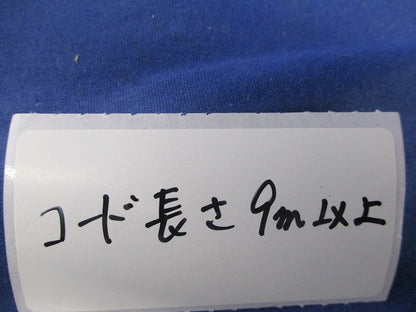 コード長さ9m以上